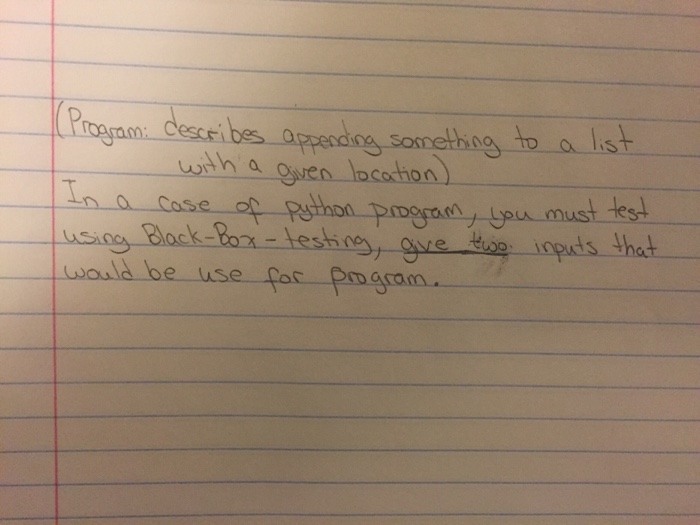 (Program: describes appending something to a list
with a given location)
In a case of python program, you must test
using Black-Box-testing, give two inputs that
would be use for program.